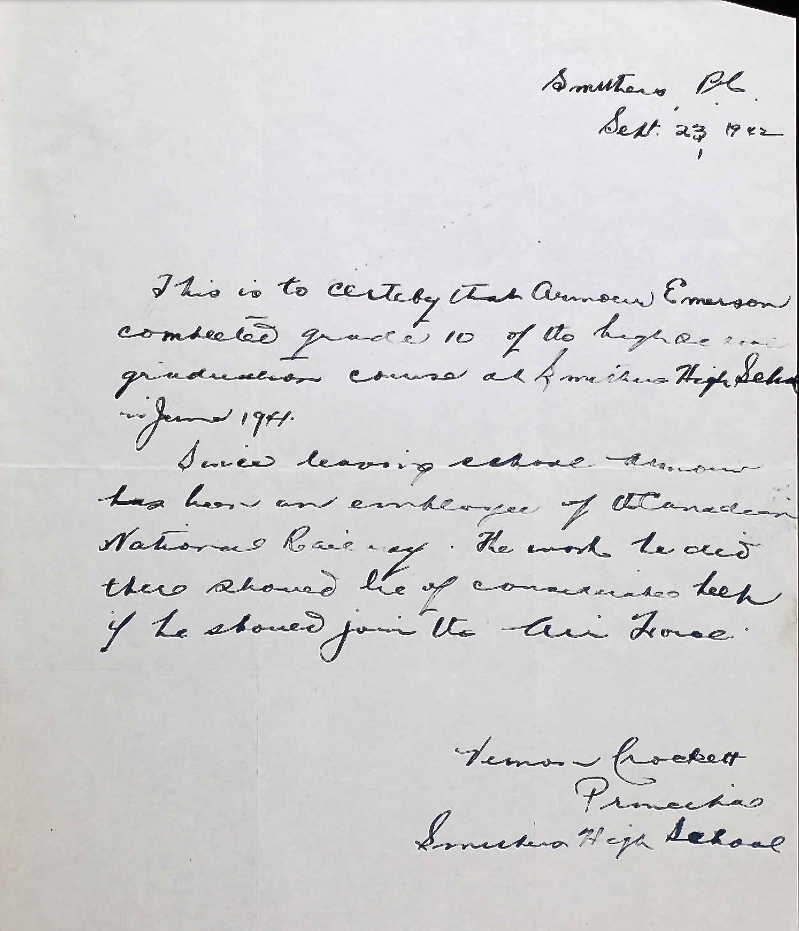 Smithers, B.C.
Sept. 23, 1942
This is to certify that Armour Emerson
completed grade 10 of the high school
graduation course at Smithers High Scho
in June 1941.
Since leaving school Armour
has been an employee of the Canadian
National Railway. The work he did
there should be of considerable help
if he should join the Air Force.
Vernon Crockett
Principal
Smithers High School